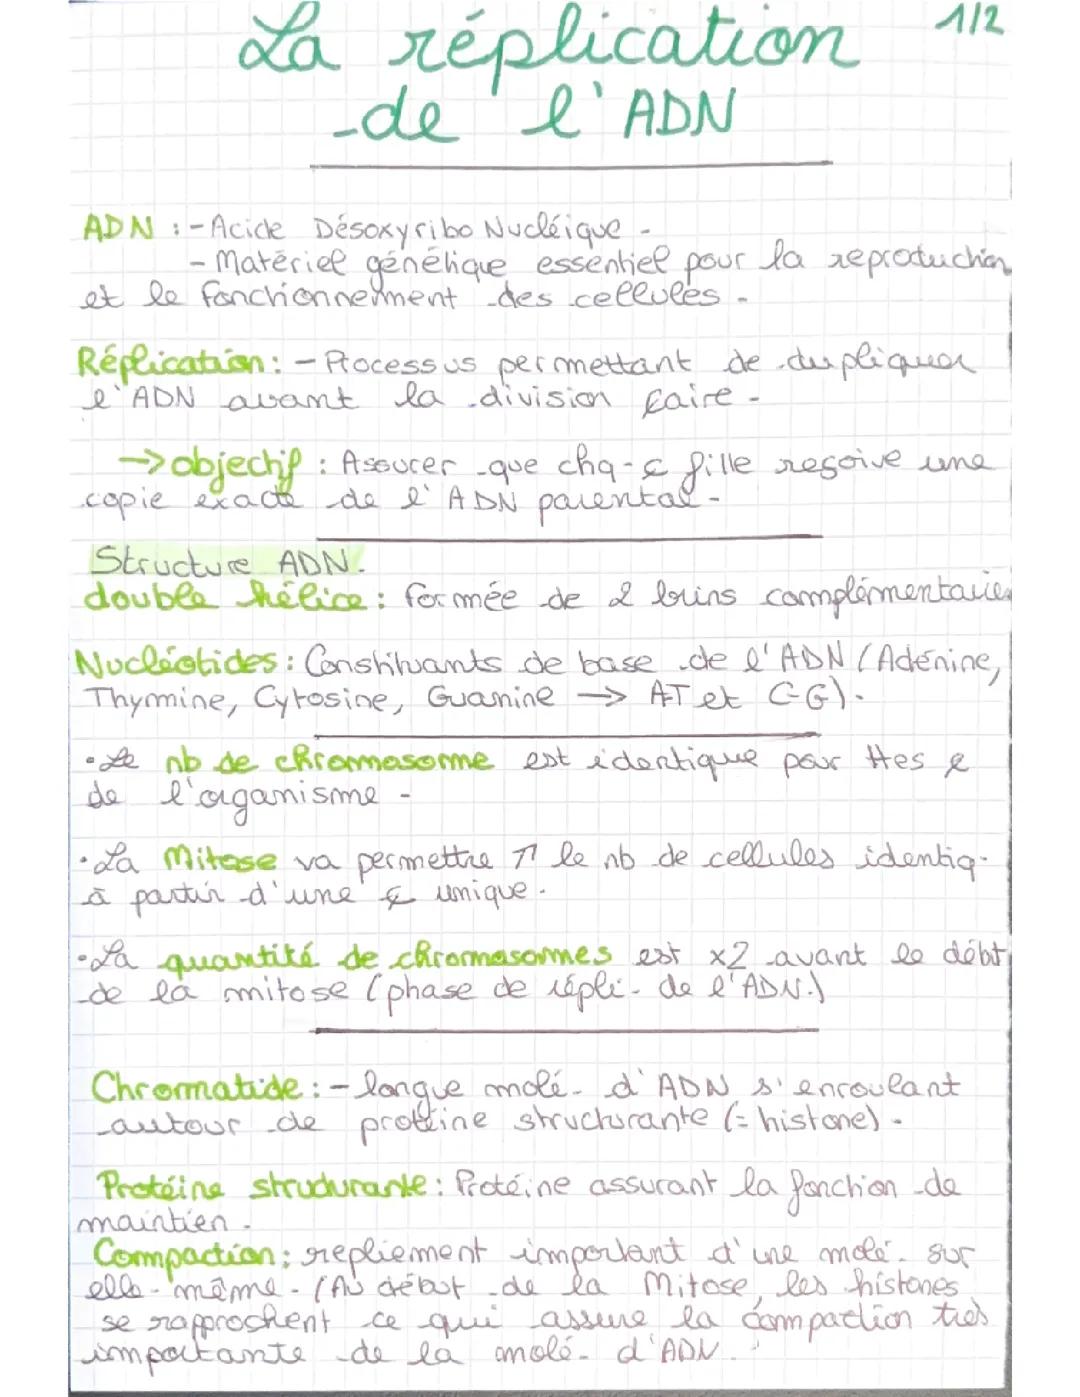 La réplication 1/2
de l'ADN
ADN : - Acide Désoxyribo Nucléique.
- Matériel génétique essentiel pour la reproduction
et le fonctionnement des cellules.
Réplication : - Processus permettant de dupliquer
l'ADN avant la division
→ objectif : Assurer que chq fille reçoive une
copie exacte de l'ADN parental.
Structure ADN.
double hélice : formée de 2 brins complémentaires
Nucléotides : Constituants de base de l'ADN (Adénine,
Thymine, Cytosine, Guanine → A-T et C-G).
• Le nb de chromosome est identique pour ttes
de l'organisme.
• La Mitose va permettre ↗ le nb de cellules identiq.
à partir d'une unique.
• La quantité de chromosomes est x2 avant le débt
de la mitose (phase de répli. de l'ADN.)
Chromatide : - longue molé. d'ADN s'enroulant
autour de protéine structurante (= histone).
Protéine structurante : Protéine assurant la fonction de
maintien.
Compaction : repliement important d'une molé. sur
elle-même. (Au début de la Mitose, les histones
se rapprochent ce qui assure la compaction très
importante de la molé. d'ADN.